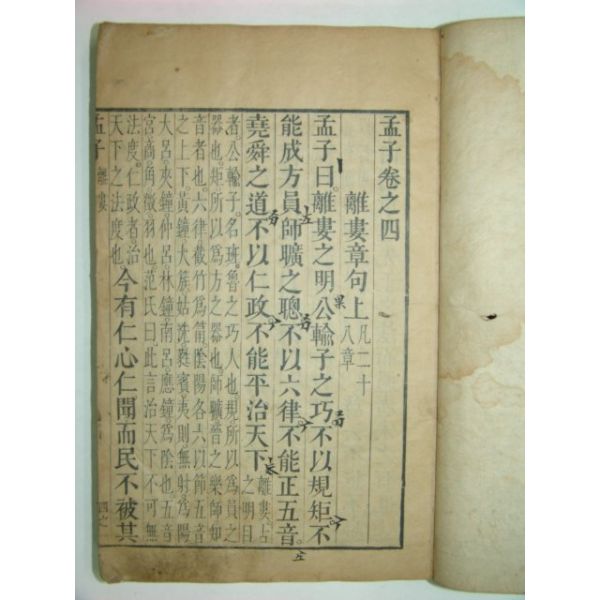 孟子卷之四
離婁章句上 凡二十
八章
孟子曰。離婁之明公輸子之巧。不以規矩不
能成方員師曠之聰不以六律不能正五音。
堯舜之道不以仁政不能平治天下 離婁古
之明目
者。公輸子。名班。魯之巧人也。規所以爲員之
器也。矩所以爲方之器也。師曠晉之樂師知
音者也。六律截竹爲筩陰陽各六以節五音
之上下。黃鐘大簇姑洗蕤賓夷則無射爲陽
大呂夾鐘仲呂林鐘南呂應鐘爲陰也五音
宮商角徵羽也范氏曰此言治天下不可無
法度。仁政者治
天下之法度也 今有仁心仁聞而民不被其
孟子 離婁